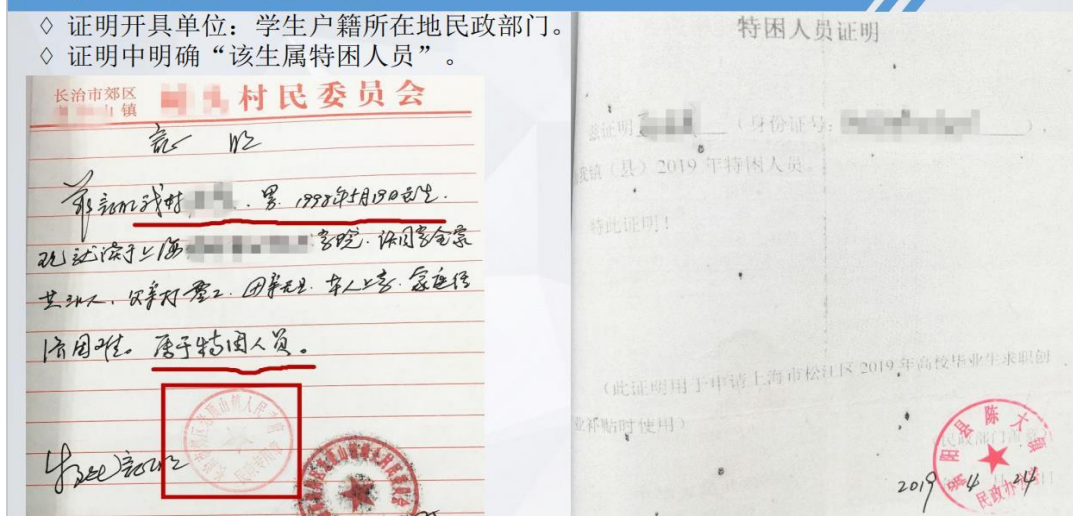 ◇ 证明开具单位：学生户籍所在地民政部门。
◇ 证明中明确“该生属特困人员”。
长治市郊区
山镇
村民委员会
证明
兹证明我村 ，男，1998年5月19日出生.
现就读于上海 学院，该同学全家
共三人，父亲打零工，母亲无业，本人上学，家庭经
济困难。属于特困人员。
特此证明
特困人员证明
兹证明 （身份证号： ），
我镇（县）2019 年特困人员。
特此证明！
（此证明用于申请上海市松江区 2019 年高校毕业生求职创
业补贴时使用）
民政部门
县陈大镇
民政办
2019 4 月 24 日